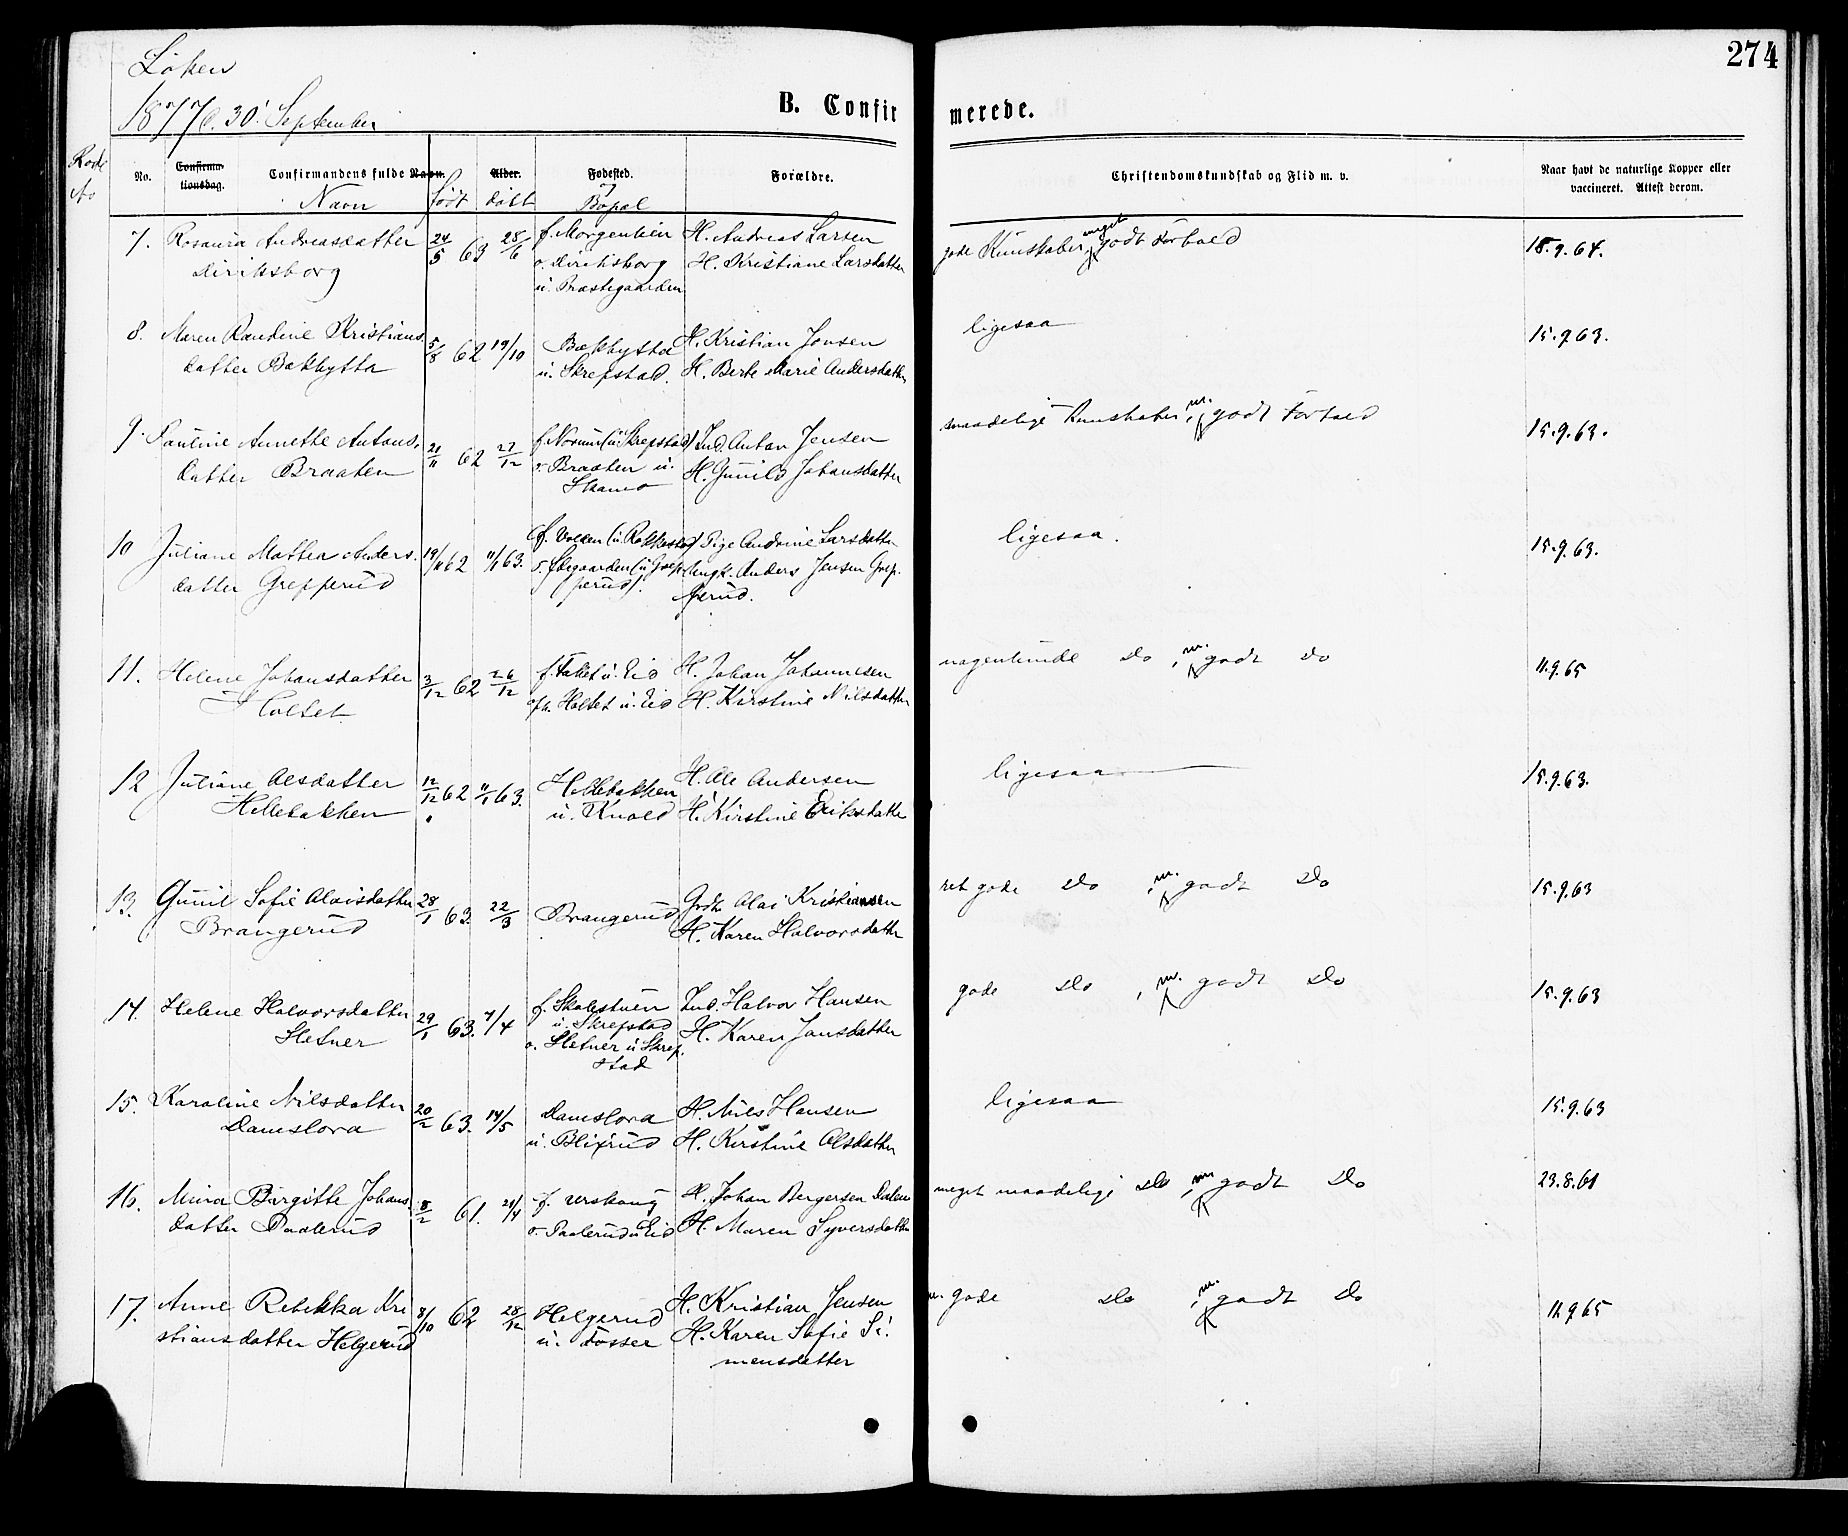 274
Løken
1877 d. 30. September
B. Confir merede.
No. Confirmationsdag. Confirmandens fulde Navn. Alder. Fødested. Forældre. Christendomskundskab og Flid m. v. Naar havt de naturlige Kopper eller vaccineret. Attest derom.
Navn født døbt Bopæl
7. Rosaura Andreasdatter 24/5 63 28/6 f. Morgentien H. Andreas Larsen gode Kunskaber, meget godt Forhold 18.9.64.
Diriksborg o. Diriksborg H. Kristiane Larsdatter
u. Præstegaarden
8. Maren Randine Kristians 5/8 62 19/10 Bakhytta H. Kristian Jonsen ligesaa 15.9.63.
datter Bakhytta u. Skrepstad. H. Berte Marie Andersdatter
9. Pauline Annette Antons 21/11 62 27/12 f. Norum (u. Skrepstad) Ind. Anton Jensen maadelige Kunskaber, m. godt Forhold 15.9.63.
datter Braaten o. Braaten u. H. Gunild Johansdatter
10 Juliane Mathea Anders 19/11 62 11/1 63. Pige Andrine Larsdatter ligesaa. 15.9.63.
datter Grepperud Ungk. Anders Jensen Grep
perud). perud.
11. Helene Johansdatter 3/12 62 26/12 u. Eid H. Johan Johannesen nogenlunde Do, m. godt Do 11.9.65
Holtet Holtet u. Eid H. Kirstine Nilsdatter
12 Juliane Olsdatter 12/12 62 11/1 63. Hellebakken H. Ole Andersen ligesaa 15.9.63.
Hellebakken u. Knold H. Kirstine Eriksdatter
13. Gunil Sofie Olaisdatter 28/1 63. 22/3 Brangerud Olai Kristiansen ret gode Do, m. godt Do 15.9.63
Brangerud H. Karen Halvorsdatter
14. Helene Halvorsdatter 29/1 63. 7/4 f. Skolestuen Ind. Halvor Hansen gode Do, m. godt Do 15.9.63
Sletner u. Skrepstad H. Karen Jansdatter
o. Sletner u Skrep.
stad
15. Karoline Nilsdatter 20/2 63. 14/5 Damslora H. Nils Hansen ligesaa 15.9.63
Damslora u. Blixrud H. Kirstine Olsdatter
16. Mina Birgitte Johans 8/2 61. 21/4 f. Urskoug H. Johan Bergersen Dalen meget maadelige Do, m. godt Do 23.8.61
datter Paalerud o. Paalerud u Eid H. Maren Syversdatter
17. Anne Rebekka Kri 8/10 62 28/12 Helgerud H. Kristian Jensen m. gode Do, m. godt Do 11.9.65
stiansdatter Helgerud u. Fosser H. Karen Sofie Si.
mensdatter